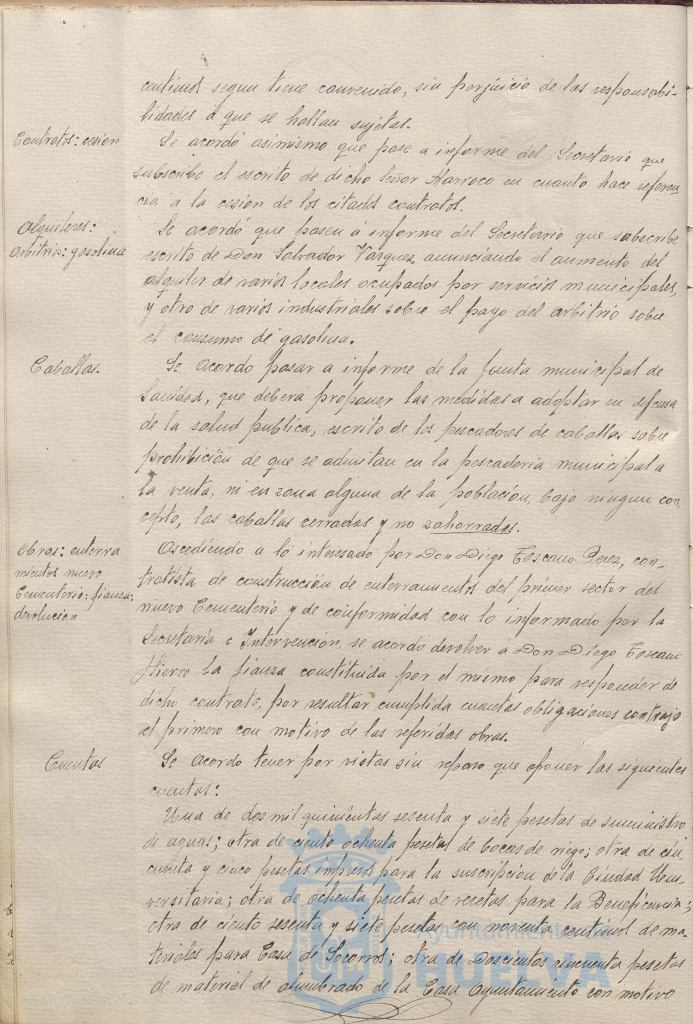 centimos segun tiene convenido, sin perjuicio de las responsabi-
lidades a que se hallan sujetas.
Contratos: cesion
Se acordó asimismo que pase a informe del Secretario que
subscribe el escrito de dicho Señor Marroco en cuanto hace referen
cia a la cesion de los citados contratos.
Alquileres:
Arbitrio: gasolina
Se acordó que pasen á informe del Secretario que subscribe
escrito de Don Salvador Vazquez anunciando el aumento del
alquiler de varios locales ocupados por servicios municipales,
y otro de varios industriales sobre el pago del arbitrio sobre
el consumo de gasolina.
Caballas.
Se acordo pasar a informe de la Junta municipal de
Sanidad, que deberá proponer las medidas a adoptar en defensa
de la salud publica, escrito de los pescadores de caballas sobre
prohibición de que se admitan en la pescaderia municipal a
la venta, ni en zona alguna de la población, bajo ningun con
cepto, las caballas cerradas y no zahorradas.
Obras: enterra
mientos nuevo
Cementerio: fianza:
devolucion
Accediendo a lo interesado por Don Diego Toscano Perez, con-
tratista de construcción de enterramientos del primer sector del
nuevo Cementerio y de conformidad con lo informado por la
Secretaría e Intervención, se acordo devolver á Don Diego Toscano
Hierro la fianza constituida por el mismo para responder de
dicho contrato, por resultar cumplida cuantas obligaciones contrajo
el primero con motivo de las referidas obras.
Cuentas
Se acordo tener por vistas sin reparo que oponer las siguientes
cuentas:
Una de dos mil quinientas sesenta y siete pesetas de suministro
de aguas; otra de ciento ochenta pesetas de bocas de riego; otra de cin
cuenta y cinco pesetas impresos para la suscripcion de la Ciudad Uni-
versitaria; otra de ochenta pesetas de recetas para la Beneficencia;
otra de ciento sesenta y siete pesetas con noventa centimos de ma-
teriales para Casa de Socorros; otra de Doscientas cincuenta pesetas
de material de alumbrado de la Casa Ayuntamiento con motivo
Ayuntamiento de
HUELVA